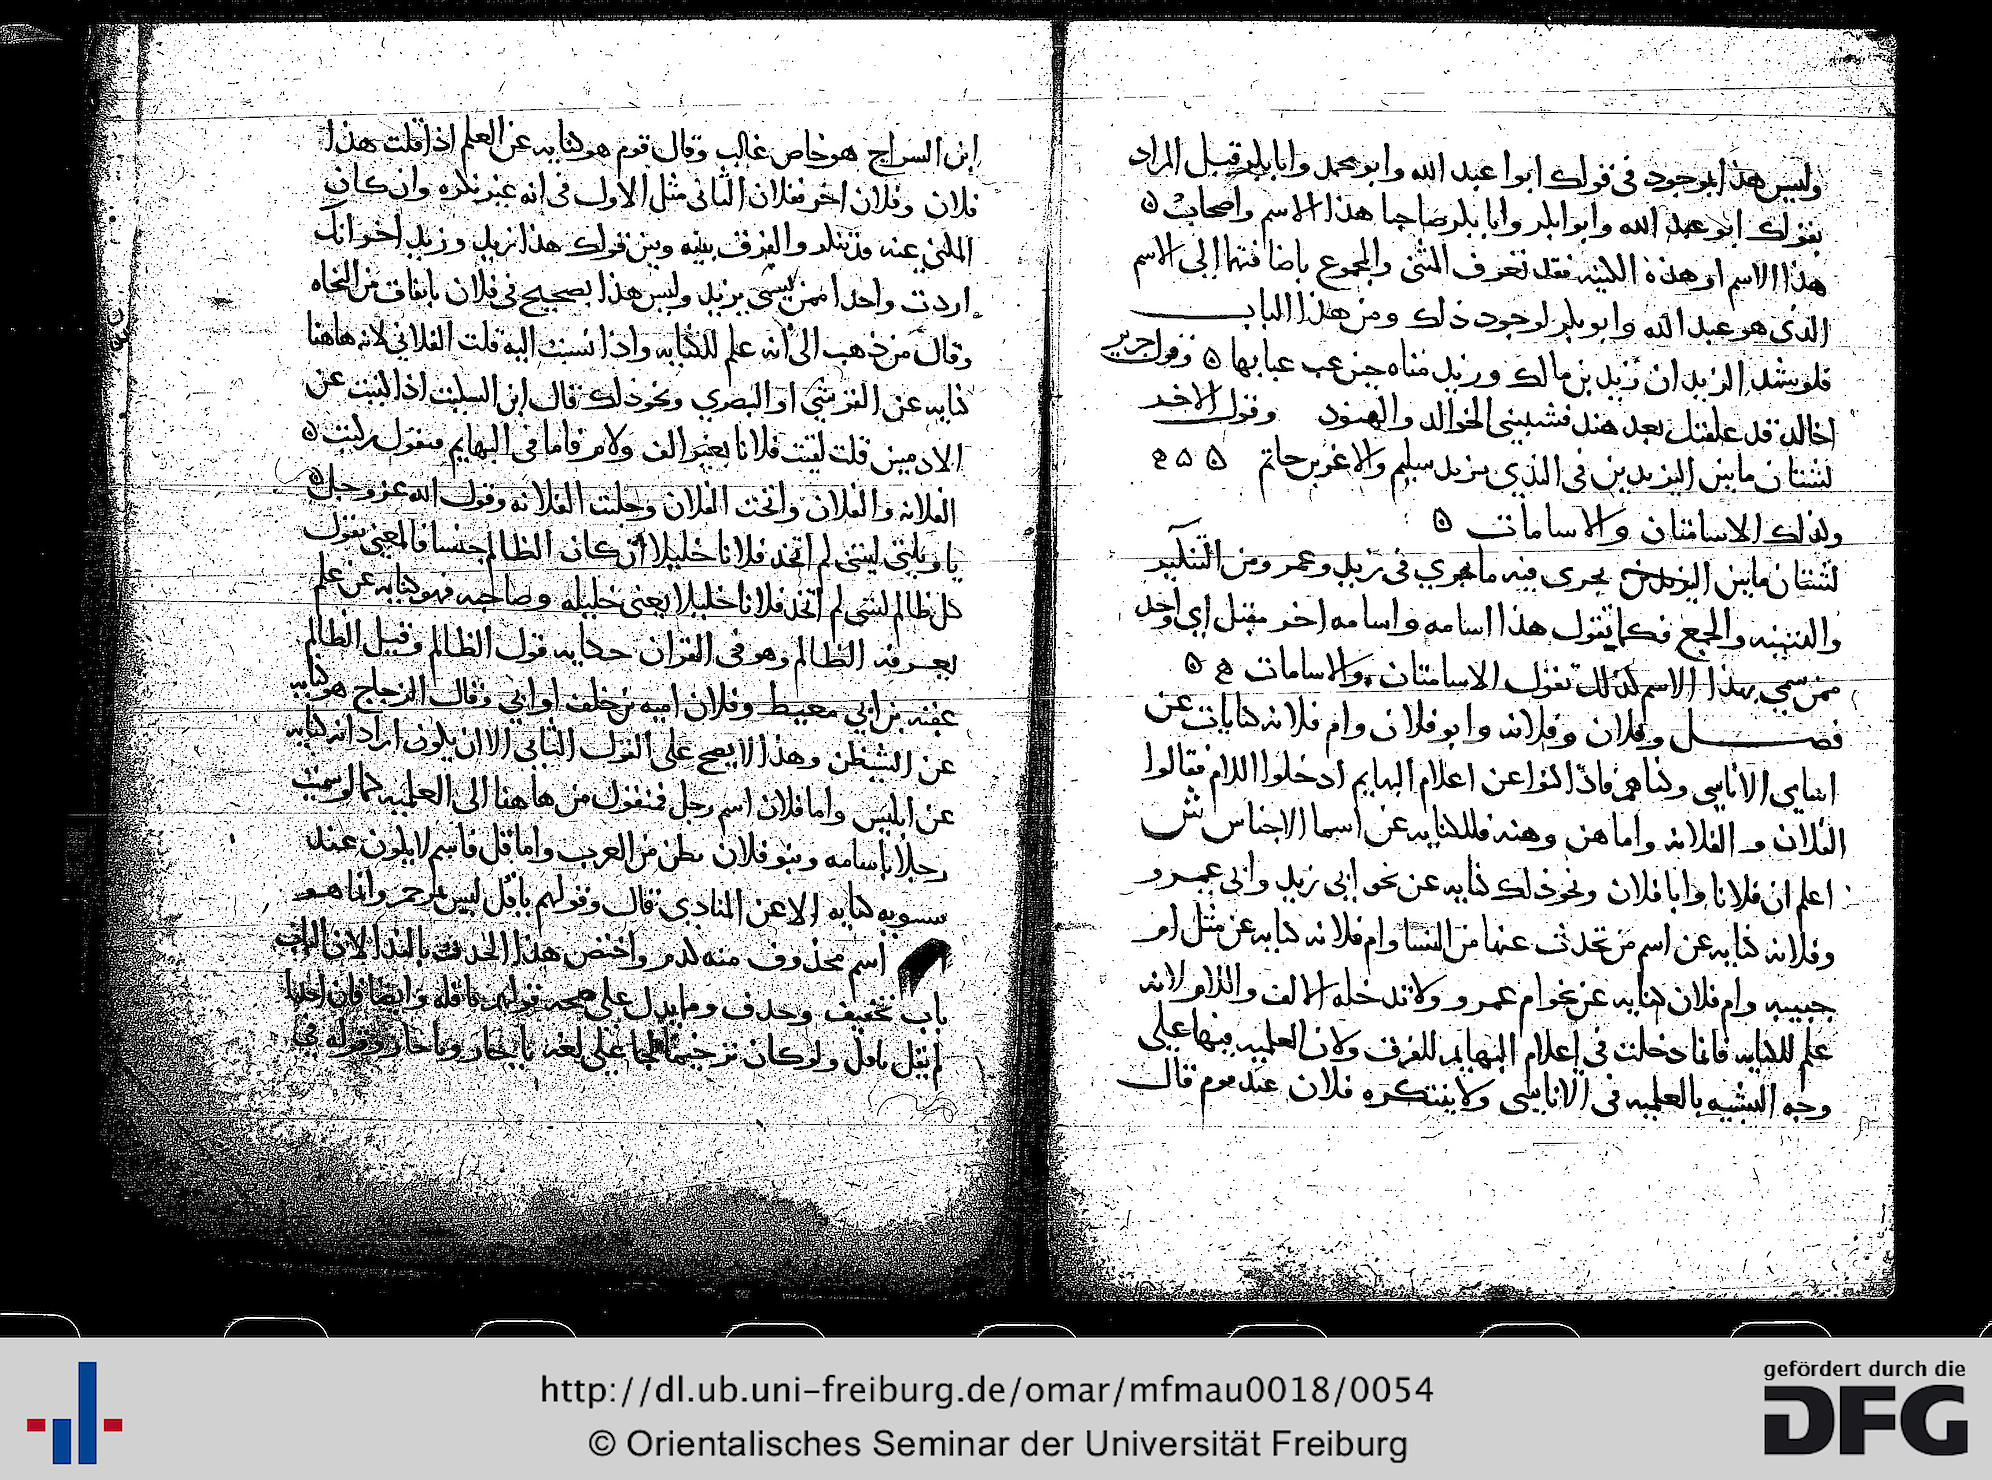 وليس هذا بموجود في قولك ابوا عبد الله وابو محمد وابا بكر قبل المراد
بقولك ابو عبد الله وابوا بكر وابا بكر صاحبا هذا الاسم واصحاب
هذا الاسم او هذه الكنيه فقد تعرف المثنى والمجموع باضافتهما الى الاسم
الذي هو عبد الله وابو بكر لوجود ذلك ومن هذا الباب
فلو يشد الزيدان زيد بن مالك وزيد مناه حين عب عبابها وقول جرير
اخالد قد علقتك بعد هند فشيبني الخوالد والهنود وقول الاخر
لشتان ما بين اليزيدين في الندي يزيد سليم والاغر بن حاتم
ولذلك الاسامتان والاسامات
لشتان ما بين اليزيدين يجري فيه ما جري في زيد وعمر ومن التنكير
والتثنيه والجمع فكما تقول هذا اسامه واسامه اخر مقبل اي واحد
ممن سمي بهذا الاسم كذلك تقول الاسامتان والاسامات
فصل وفلان وفلانه وابو فلان وام فلانه كنايات عن
اسامي الاناسي وكناهم فاذا كنوا عن اعلام البهايم ادخلوا اللام فقالوا
الفلان والفلانه واما هن وهنه فللكنايه عن اسما الاجناس ش
اعلم ان فلانا وابا فلان ونحو ذلك كنايه عن نحو ابي زيد وابي عمرو
وفلانه كنايه عن اسم من تحدث عنها من النسا وام فلانه كنايه عن مثل ام
حبيبه وام فلان كنايه عن نحو ام عمرو ولا تدخله الالف واللام لانه
علم للكنايه فانما دخلت في اعلام البهايم للفرق ولان العلميه فيها على
وجه التشبيه بالعلميه في الاناسي ولا يتنكره فلان عند قوم قال
ابن السراج هو خاص غالب وقال قوم هو كنايه عن العلم اذا قلت هذا
فلان وفلان اخر ففلان الثاني مثل الاول في انه غير نكره وان كان
المكني عنه قد تنكر والفرق بينه وبين قولك هذا زيد وزيد اخر انك
اردت واحدا ممن يسمى بزيد وليس هذا بصحيح في فلان باتفاق من النحاه
وقال من ذهب الى انه علم للكنايه واذا نسبت اليه قلت الفلاني لانه هاهنا
كنايه عن القرشي او البصري ونحو ذلك قال ابن السكيت اذا كنيت عن
الادميين قلت لقيت فلانا بغير الف ولام فاما في البهايم فتقول ركبت
الفلانه والفلان وانخت الفلان وحلبت الفلانه وقول الله عز وجل
يا ويلتي ليتني لم اتخذ فلانا خليلا ان كان الظالم جنسا فالمعنى يقول
كل ظالم ليتني لم اتخذ فلانا خليلا يعني خليله وصاحبه فهو كنايه عن علم
يعرفه الظالم وهو في القران حكايه قول الظالم وقيل الظالم
عقبه بن ابي معيط وفلان اميه بن خلف او ابي وقال الزجاج هو كنايه
عن الشيطن وهذا لا يصح على القول الثاني الا ان يكون اراد انه كنايه
عن ابليس واما فلان اسم رجل فمنقول من هاهنا الى العلميه كما لو سميت
رجلا باسامه وبنو فلان بطن من العرب واما فل فاسم لا يكون عند
سيبويه كنايه الا عن المنادي قال وقولهم يا فل ليس بمرخم وانما هو
اسم محذوف منه كدم واختص هذا الحذف بالندا لان الباب
باب تخفيف وحذف ومما يدل على صحه قولهم يا فله وايضا فان احدا
لم يقل يا فل ولو كان ترخيما لجا على لغه يا حار ويا حار وقوله في
http://dl.ub.uni-freiburg.de/omar/mfmau0018/0054
© Orientalisches Seminar der Universität Freiburg
gefördert durch die
DFG